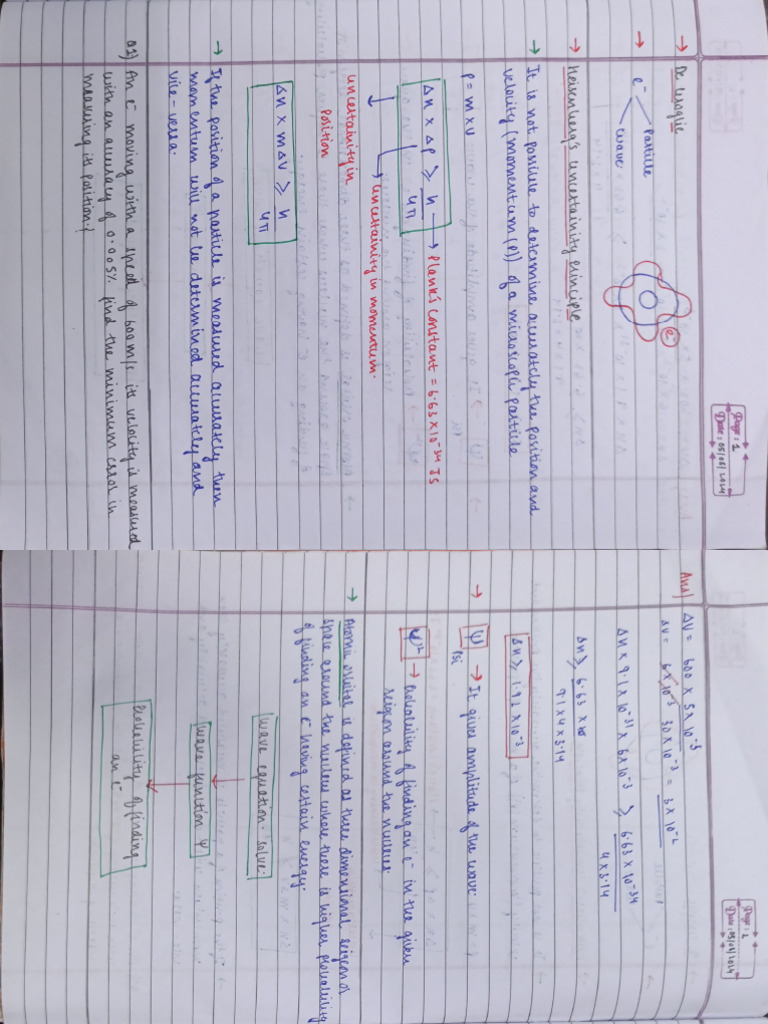 Page: 1
Date: 05/04/2024
→ De broglie
→ e⁻ Particle
wave
e⁻
→ Heisenberg's uncertainity principle
→ It is not possible to determine accurately the position and
velocity (momentum (P)) of a microscopic particle
P = m × v
Δx × Δp ≥ h/4π → Plank's constant = 6.63 × 10⁻³⁴ Js
→ uncertainity in momentum.
uncertainity in
position
Δx × mΔv ≥ h/4π
→ If the position of a particle is measured accurately then
momentum will not be determined accurately and
vice-versa.
Q1) An e⁻ moving with a speed of 600 m/s its velocity is measured
with an accuracy of 0.005% find the minimum error in
measuring its position.
Page: 2
Date: 05/04/2024
Ans) ΔV = 600 × 5 × 10⁻⁵
ΔV = 30 × 10⁻³ = 3 × 10⁻²
Δx × 9.1 × 10⁻³¹ × 6 × 10⁻³ ≥ 6.63 × 10⁻³⁴ / 4 × 3.14
Δx ≥ 6.63 × 10 / 9.1 × 4 × 3.14
Δx ≥ 1.92 × 10⁻³
→ ψ → It gives amplitude of the wave.
Psi
ψ² → Probability of finding an e⁻ in the given
reigon around the nucleus
→ Atomic orbital is defined as three dimensional reigon or
space around the nucleus where there is higher probability
of finding an e⁻ having certain energy.
wave equation · solve.
wave function ψ
Probability of finding
an e⁻